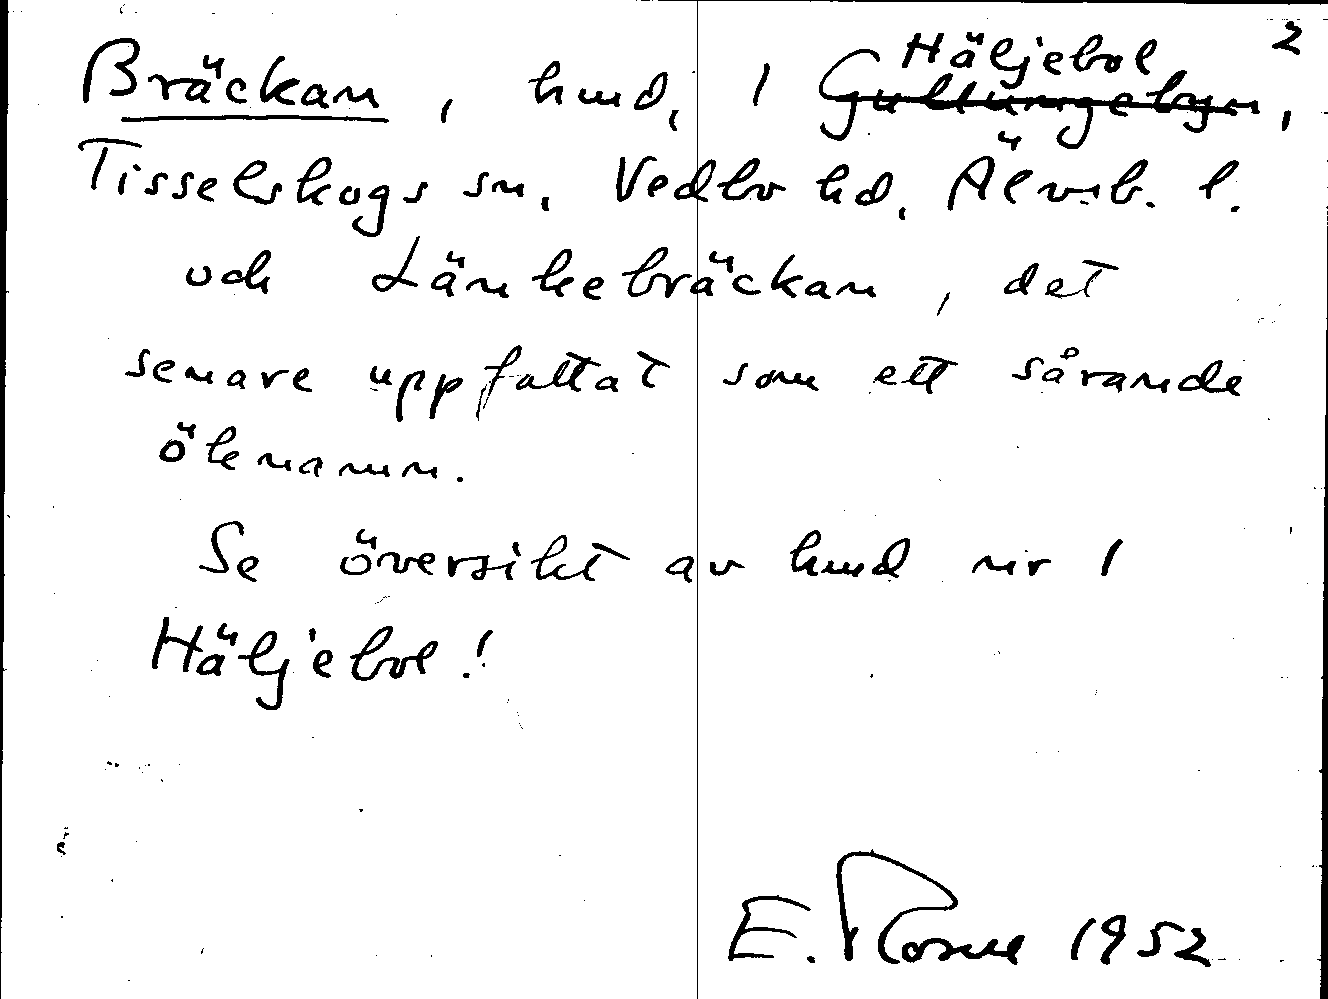 2
Bräckan, hmd, 1 Häljebol ~~Gullungebyn~~,
Tisselskogs sn, Vedbo hd, Älvsb. l.
och Länkebräckan, det
senare uppfattat som ett sårande
öknamn.
Se översikt av hmd nr 1
Häljebol!
E. Rosne 1952